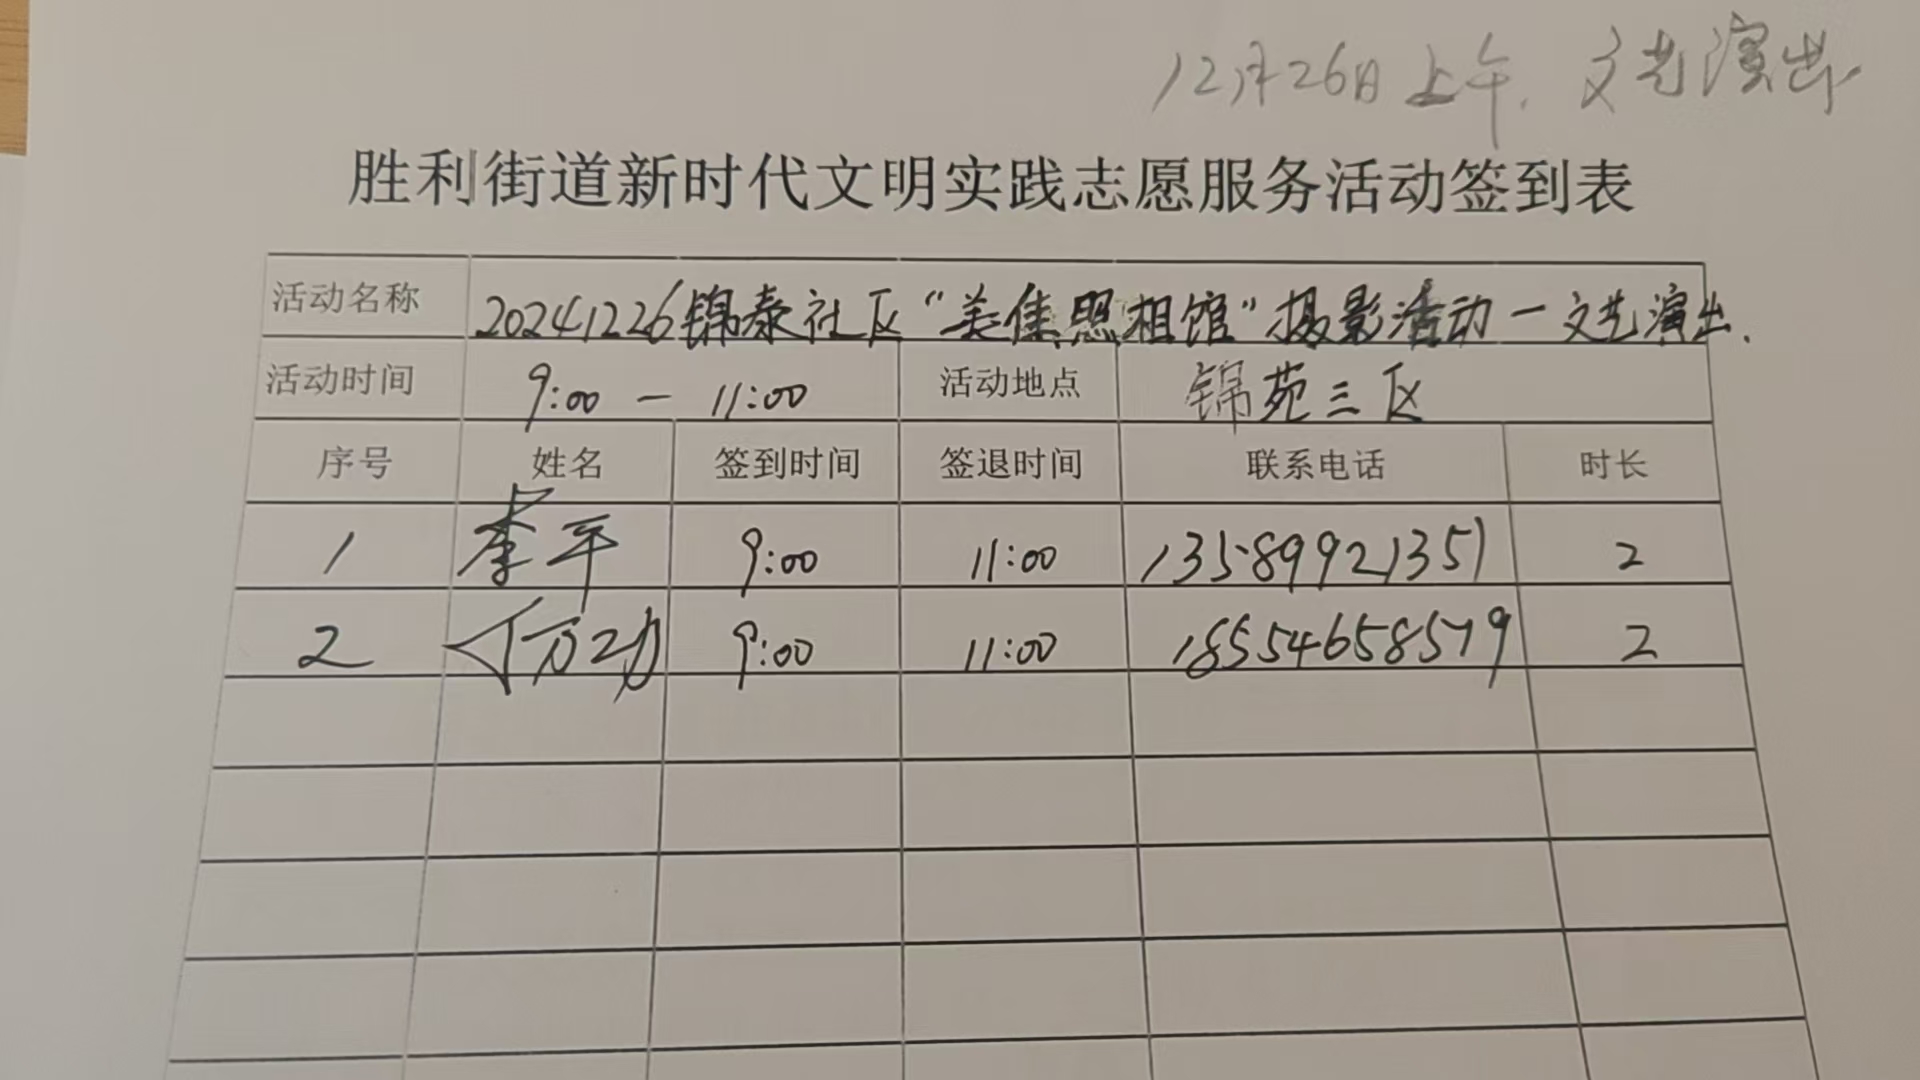 12月26日上午. 文艺演出
胜利街道新时代文明实践志愿服务活动签到表
活动名称 20241226锦泰社区“美佳照相馆”摄影活动一文艺演出.
活动时间 9:00 — 11:00 活动地点 锦苑三区
序号 姓名 签到时间 签退时间 联系电话 时长
1 李平 9:00 11:00 13589921351 2
2 9:00 11:00 18554658579 2